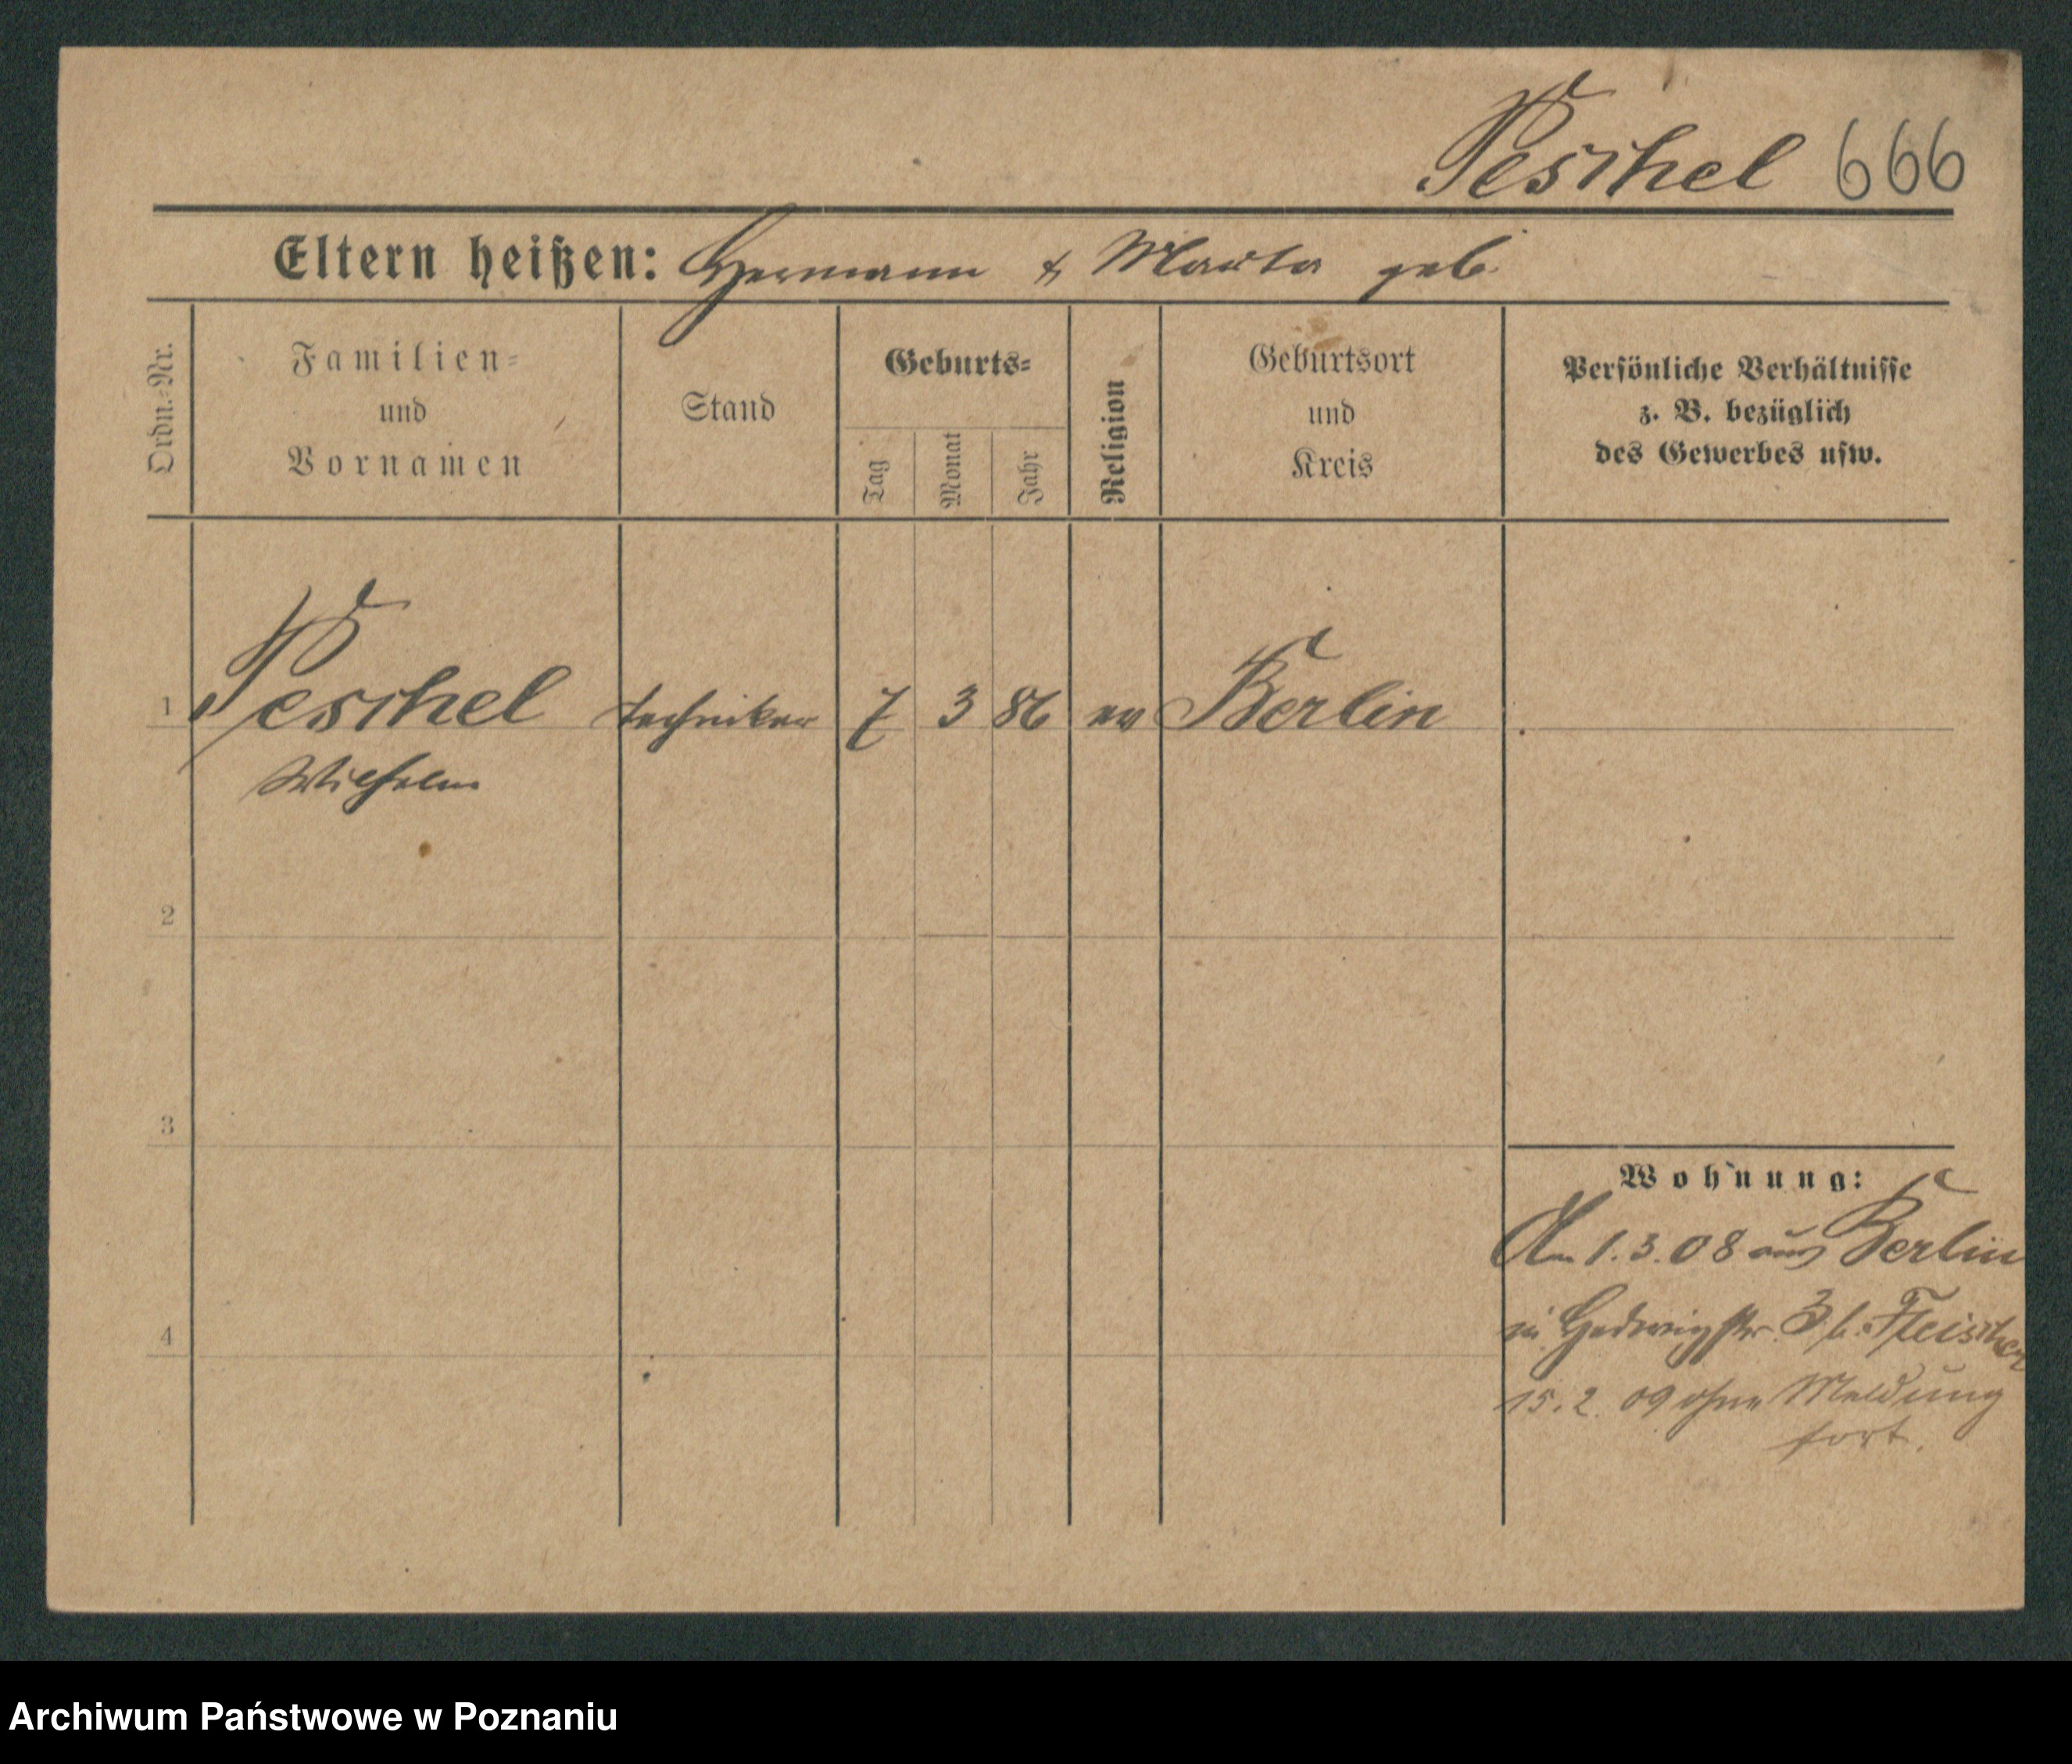 Peschel 666
Eltern heißen: Hermann & Marta geb.
Ordn.-Nr.
Familien-
und
Vornamen
Stand
Geburts-
Tag
Monat
Jahr
Religion
Geburtsort
und
Kreis
Persönliche Verhältnisse
z. B. bezüglich
des Gewerbes usw.
1 Peschel Techniker 7 3 86 ev Berlin
Wilhelm
2
3
4
Wohnung:
Am 1.3.08 aus Berlin
in Hedwigstr. 3 b. Fleischer
15.2.09 ohne Meldung
fort.
Archiwum Państwowe w Poznaniu